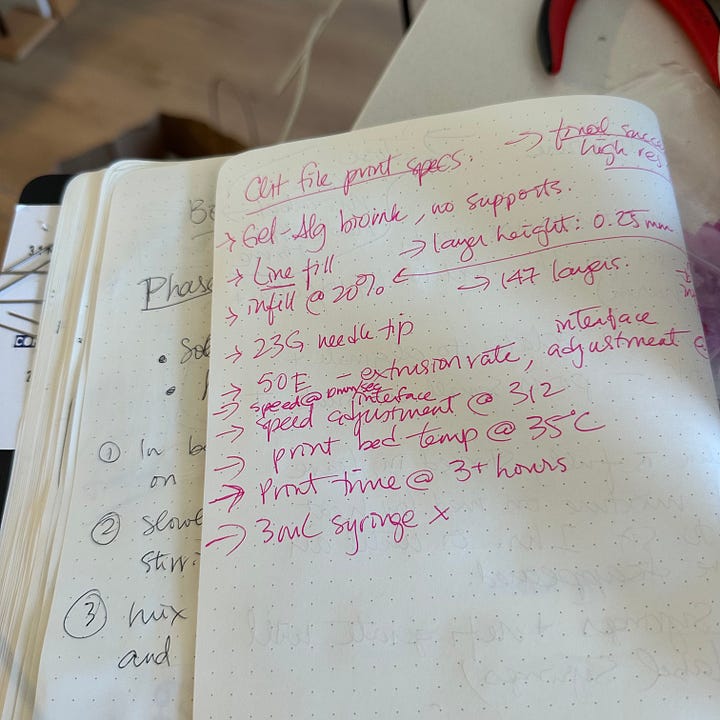 Clit file print specs.
→ high res
→ Gel-Alg bioink, no supports.
→ Line fill → layer height: 0.25 mm
→ infill @ 20% → 147 layers.
→ 23G needle tip
→ 50E – extrusion rate, interface adjustment @
→ speed @ 10mm/sec
→ speed adjustment @ 312 interface
→ print bed temp @ 35°C
→ Print time @ 3+ hours
→ 3mL syringe x
Phase
•
•
① In
on
②
③ mix
and